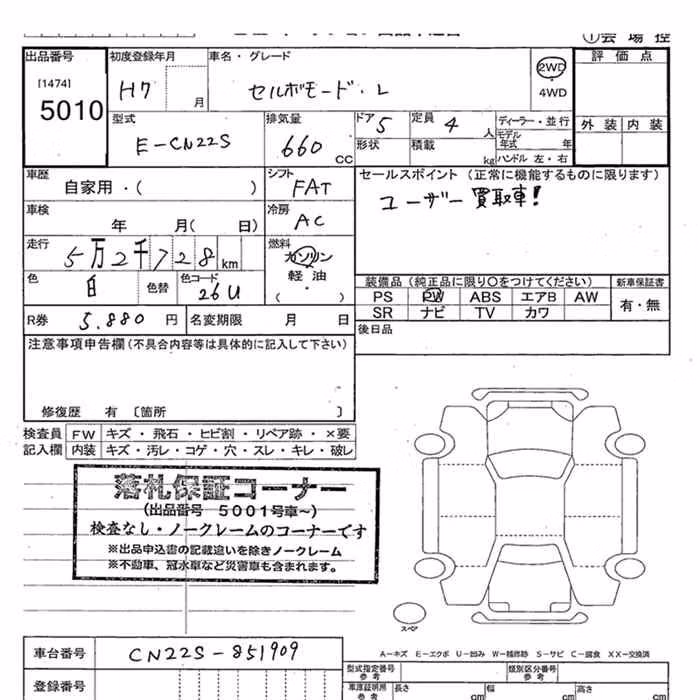 ①会場控
出品番号
[1474]
5010
初度登録年月
H7 月
車名・グレード
セルボモード・L
2WD
4WD
評価点
外装 内装
型式
E-CN22S
排気量
660 CC
ドア 5
形状
定員 4 人
積載 kg
ディーラー・並行
モデル年式 年
ハンドル 左・右
車歴
自家用・( )
シフト
FAT
セールスポイント (正常に機能するものに限ります)
ユーザー買取車!
車検
年 月( 日)
冷房
AC
走行
5万2千728 km
燃料
ガソリン
軽油
( ・ )
色
白
色替
色コード
26U
装備品 (純正品に限り○をつけてください)
PS PW ABS エアB AW
SR ナビ TV カワ
新車保証書
有・無
R券 5,880 円
名変期限 月 日
後日品
注意事項申告欄(不具合内容等は具体的に記入して下さい)
修復歴 有 〔箇所 〕
検査員記入欄
FW キズ・飛石・ヒビ割・リペア跡・×要
内装 キズ・汚レ・コゲ・穴・スレ・キレ・破レ
落札保証コーナー
(出品番号 5001号車~)
検査なし・ノークレームのコーナーです
※出品申込書の記載違いを除きノークレーム
※不動車、冠水車など災害車も含まれます。
スペア
A-キズ E-エクボ U-凹み W-補修跡 S-サビ C-腐食 XX-交換済
車台番号
CN22S-851909
登録番号
型式指定番号
参考
類別区分番号
参考
車庫証明用
参考
長さ cm
幅 cm
高さ cm